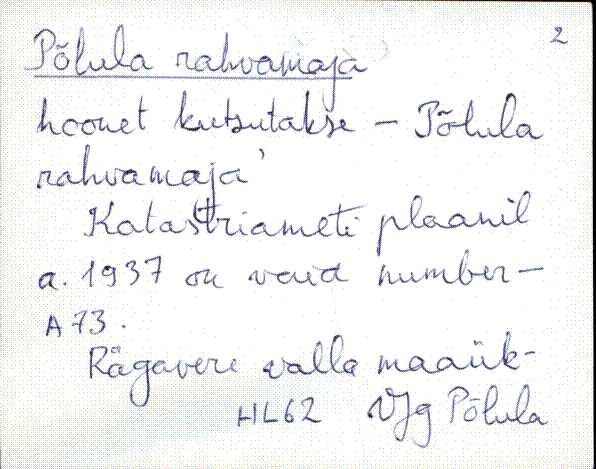 2
Põlula rahvamaja
hoonet kutsutakse – Põlula
rahvamaja'
Katastriameti plaanil
a. 1937 on vaid number –
A 73.
Rägavere valla maaük-
HL62 VJg Põlula